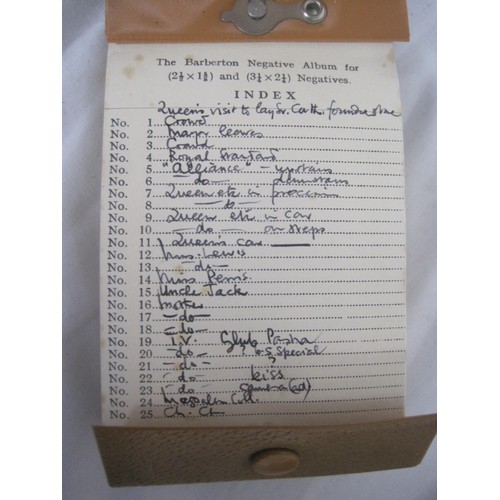 The Barberton Negative Album for
(2½ × 1⅝) and (3¼ × 2¼) Negatives.
INDEX
Queen's visit to lay Cath. foundn stone
No. 1. Crowd
No. 2. Major leaves
No. 3. Crowd
No. 4. Royal Standard
No. 5. "Alliance" - upstairs
No. 6. - do - downstairs
No. 7. Queen etc in procession
No. 8. - do -
No. 9. Queen etc in car
No. 10. - do - on steps
No. 11. Queen's car
No. 12. Mrs. Lewis
No. 13. - do -
No. 14. Miss
No. 15. Uncle Jack
No. 16. Mother
No. 17. - do -
No. 18. - do -
No. 19. T.V. Glub Pasha
No. 20. - do - Special
No. 21. - do -
No. 22. - do - kiss
No. 23. - do - (ad)
No. 24. Magdalen Coll.
No. 25. Ch. Ch.